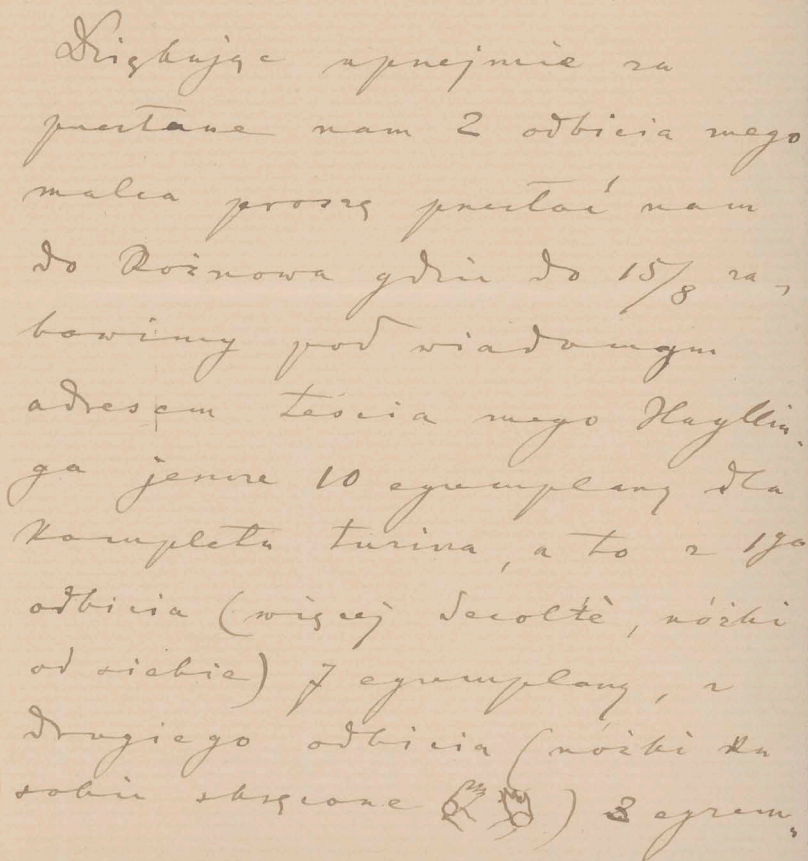 Dziękując uprzejmie za
przesłane nam 2 odbicia mego
malca proszę przesłać nam
do Rożnowa gdzie do 15/8 za-
bawimy pod wiadomym
adresem teścia mego Hayllin-
ga jeszcze 10 egzemplarzy dla
kompletu tuzina, a to z 1go
odbicia (więcej decolté, nóżki
od siebie) 7 egzemplarzy, z
drugiego odbicia (nóżki ku
sobie skręcone ) 3 egzem-